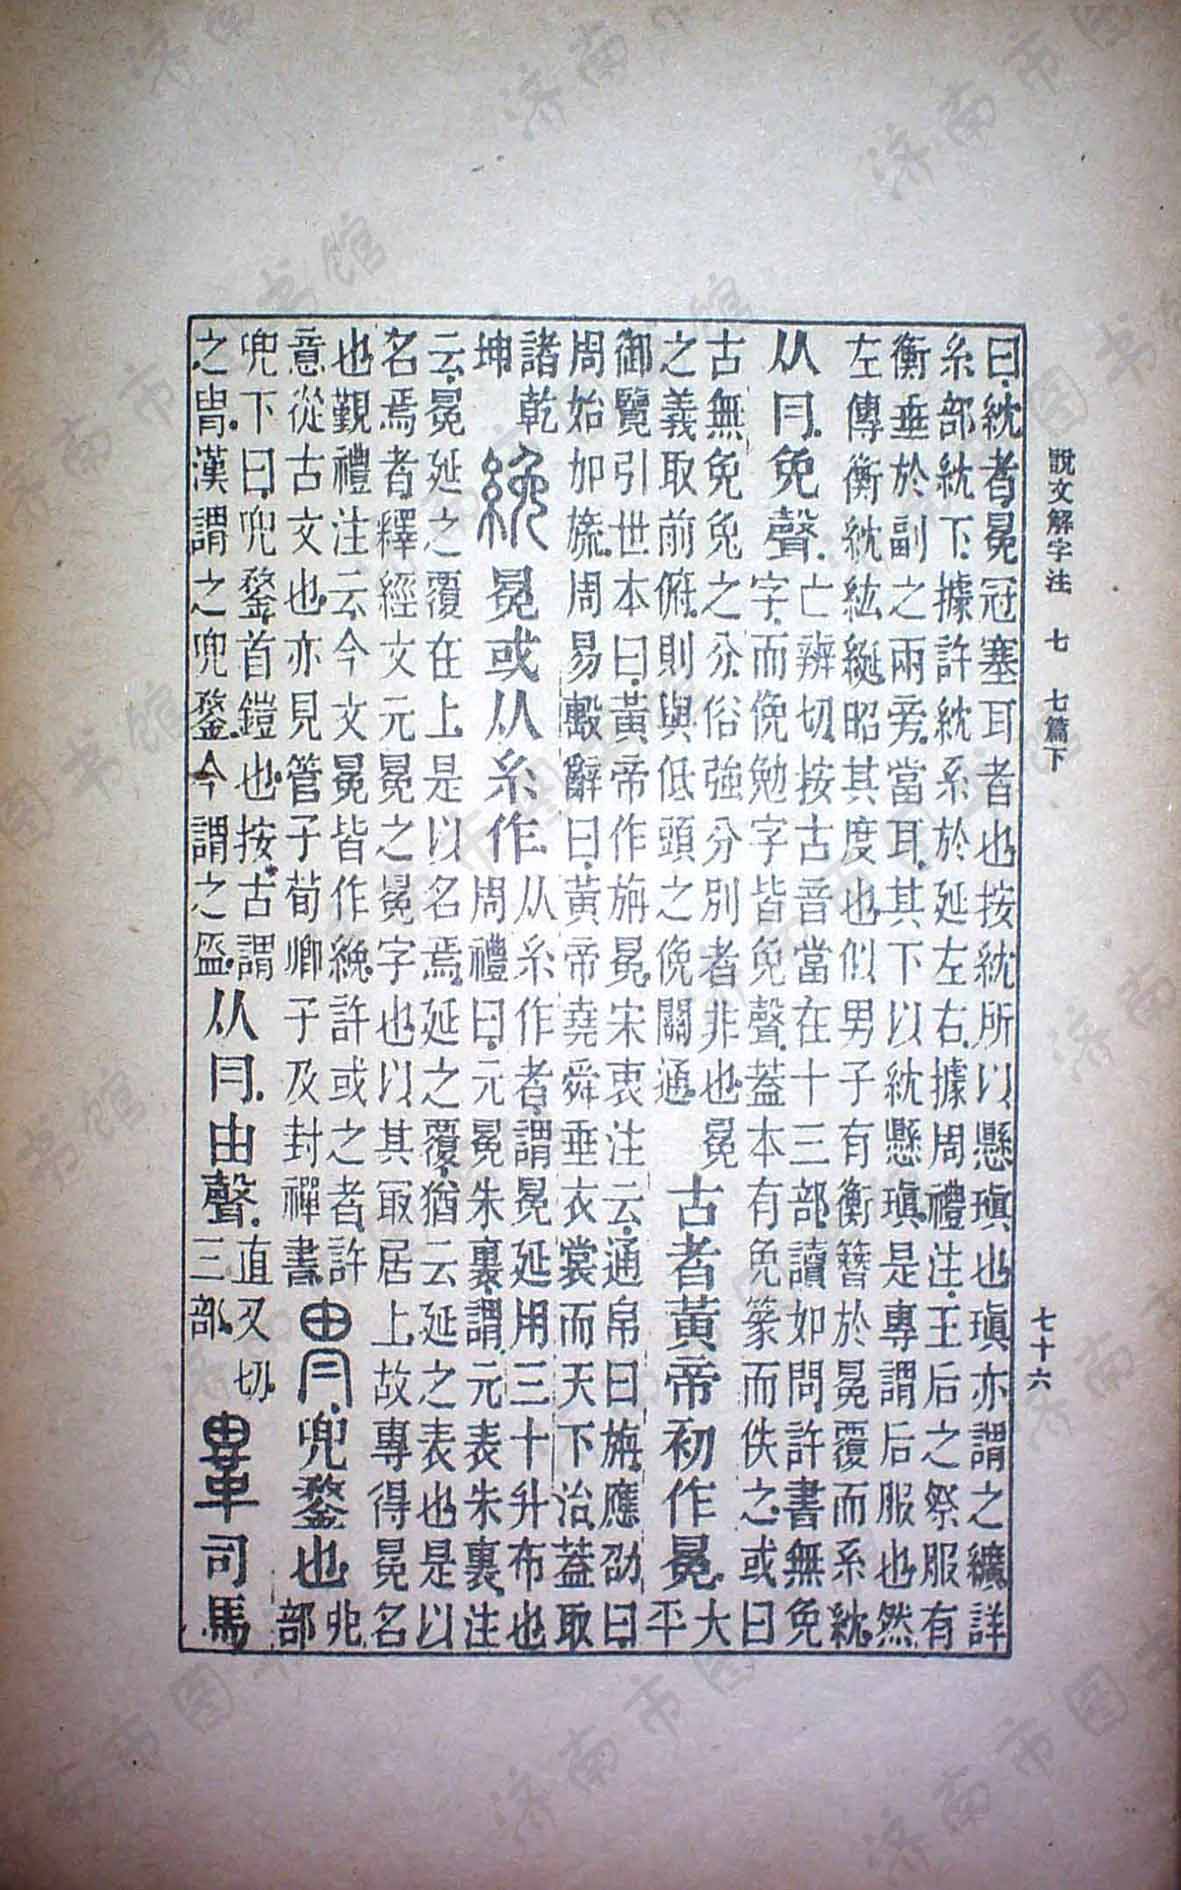 說文解字注 七 七篇下 七十六
曰紞者冕冠塞耳者也按紞所以懸瑱也瑱亦謂之纊詳
糸部紞下據許紞系於延左右據周禮注王后之祭服有
衡垂於副之兩旁當耳其下以紞懸瑱是專謂后服也然
左傳衡紞紘綖昭其度也似男子有衡簪於冕覆而系紞
从冃免聲亡辨切按古音當在十三部讀如問許書無免
字而俛勉字皆免聲蓋本有免篆而佚之或曰
古無免兔之分俗強分別者非也冕
之義取前俯則與低頭之俛關通古者黃帝初作冕大平
御覽引世本曰黃帝作旃冕宋衷注云通帛曰旃應劭曰
周始加旒周易毄辭曰黃帝堯舜垂衣裳而天下治蓋取
諸乾坤絻冕或从糸作从糸作者謂冕延用三十升布也
周禮曰元冕朱裏謂元表朱裏注
云冕延之覆在上是以名焉延之覆猶云延之表也是以
名焉者釋經文元冕之冕字也以其冣居上故專得冕名
也覲禮注云今文冕皆作絻許或之者許
意從古文也亦見管子荀卿子及封禪書冑兜鍪也𠑹部
兜下曰兜鍪首鎧也按古謂
之冑漢謂之兜鍪今謂之盔从冃由聲直又切三部𩊄司馬